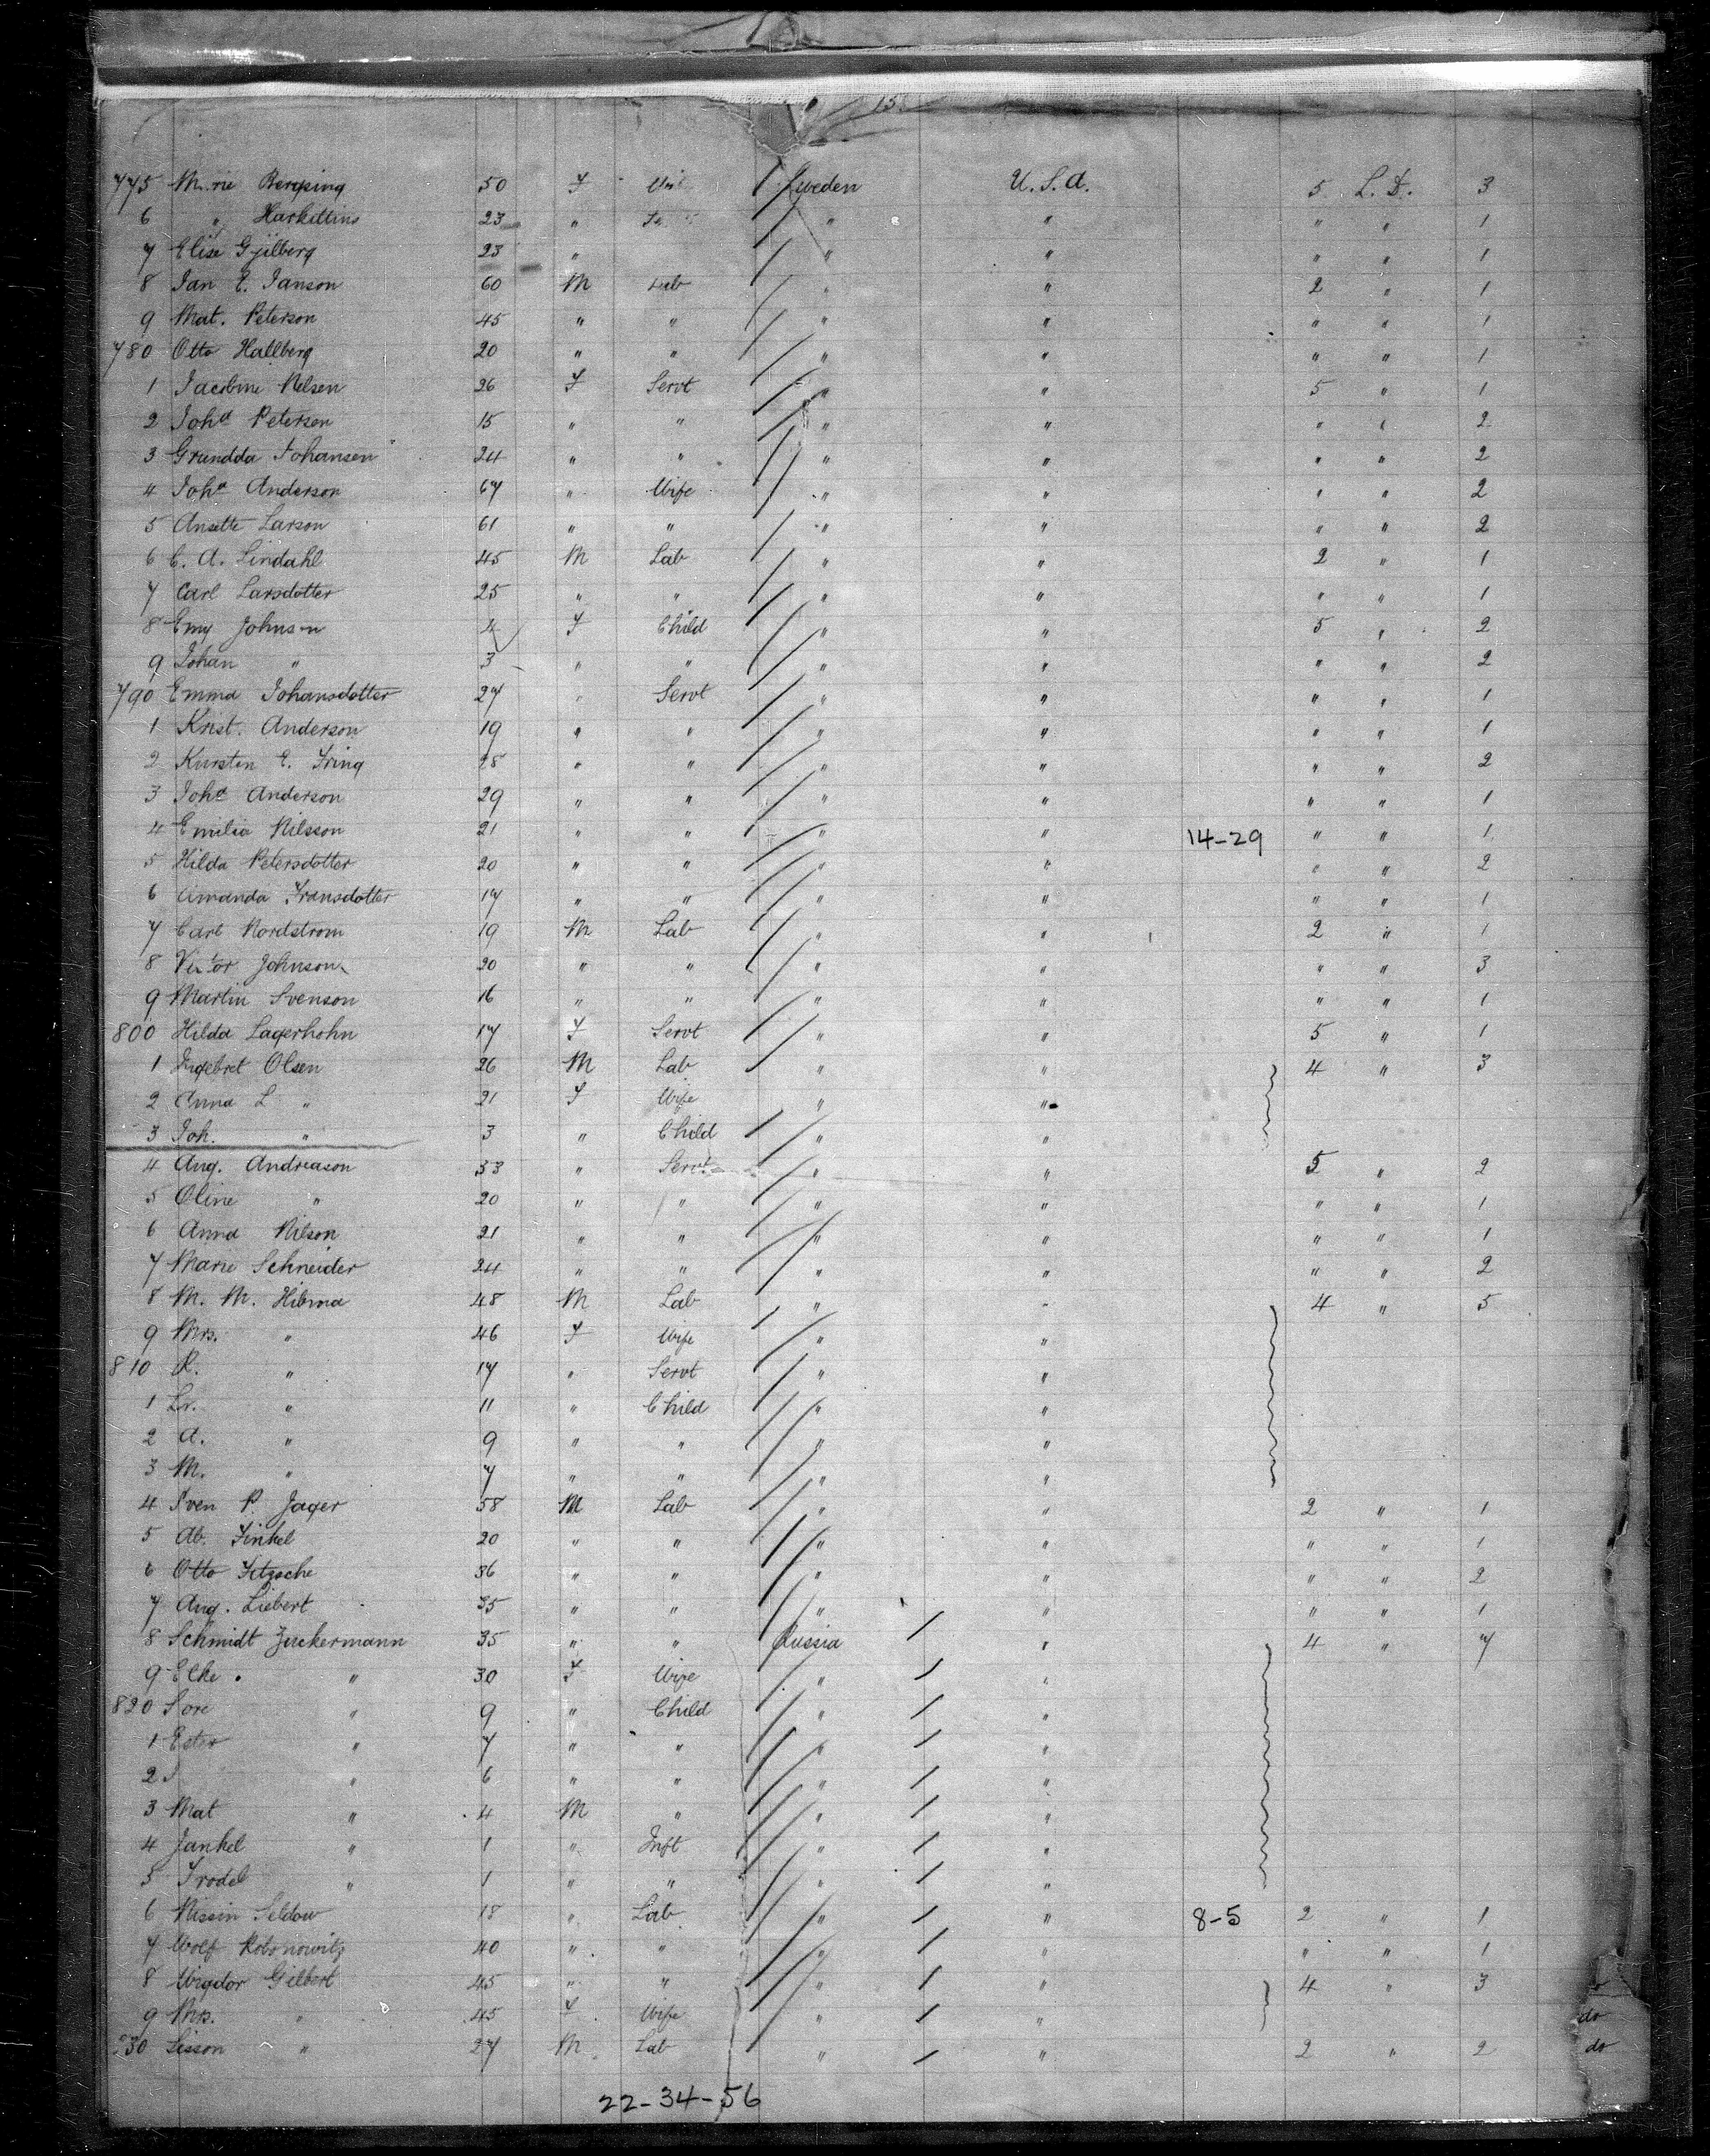 15.
775 Marie Bergsing 50 F Sweden U. S. A. 5 L. D. 3
6 " 23 " " " " " 1
7 Elise Gyilberg 23 " " " " " 1
8 Jan E. Janson 60 M Lab " " 2 " 1
9 Mat. Peterson 45 " " " " " " 1
780 Otto Hallberg 20 " " " " " " 1
1 Jacobine Nelsen 26 F Servt " " 5 " 1
2 Joha Petersen 15 " " " " " " 2
3 Grundda Johansen 24 " " " " " " 2
4 Joha Anderson 67 " Wife " " " " 2
5 Ansette Larson 61 " " " " " " 2
6 C. A. Lindahl 45 M Lab " " 2 " 1
7 Carl Larsdotter 25 " " " " " " 1
8 Emy Johnson 4 F Child " " 5 " 2
9 Johan " 3 " " " " " " 2
790 Emma Johansdotter 27 " Servt " " " " 1
1 Krist. Anderson 19 " " " " " " 1
2 Kursten E. Fring 28 " " " " " " 2
3 Joha Anderson 29 " " " " " " 1
4 Emilia Nilsson 21 " " " " 14-29 " " 1
5 Hilda Petersdotter 20 " " " " " " 2
6 Amanda Fransdotter 17 " " " " " " 1
7 Carl Nordstrom 19 M Lab " " 2 " 1
8 Victor Johnson 20 " " " " " " 3
9 Martin Svenson 16 " " " " " " 1
800 Hilda Lagerhohn 17 F Servt " " 5 " 1
1 Ingebret Olsen 26 M Lab " " 4 " 3
2 Anna L " 21 F Wife " "
3 Joh. " 3 " Child " "
4 Aug. Andreason 33 " Servt " " 5 " 2
5 Oline " 20 " " " " " " 1
6 Anna Nilson 21 " " " " " " 1
7 Marie Schneider 24 " " " " " " 2
8 M. M. Hibma 48 M Lab " " 4 " 5
9 Mrs. " 46 F Wife " "
810 R. " 17 " Servt " "
1 Lr. " 11 " Child " "
2 A. " 9 " " " "
3 M. " 7 " " " "
4 Sven P. Jager 58 M Lab " " 2 " 1
5 Ab. Finkel 20 " " " " " " 1
6 Otto Fitzsche 36 " " " " " " 2
7 Aug. Liebert 35 " " " " " " 1
8 Schmidt Zuckermann 35 " " Russia " 4 " 7
9 Elke " 30 F Wife " "
820 Sore " 9 " Child " "
1 Ester " 7 " " " "
2 " 6 " " " "
3 Mat " 4 M " " "
4 Jankel " 1 " Inft " "
5 Frodel " 1 " " " "
6 Nissin Seldow 18 " Lab " " 8-5 2 " 1
7 Wolf Robonowitz 40 " " " " " " 1
8 Wigdor Gilbert 45 " " " " 4 " 3
9 Mrs. " 45 F Wife " " do
830 Lisson " 27 M Lab " " 2 " 2 do
22-34-56